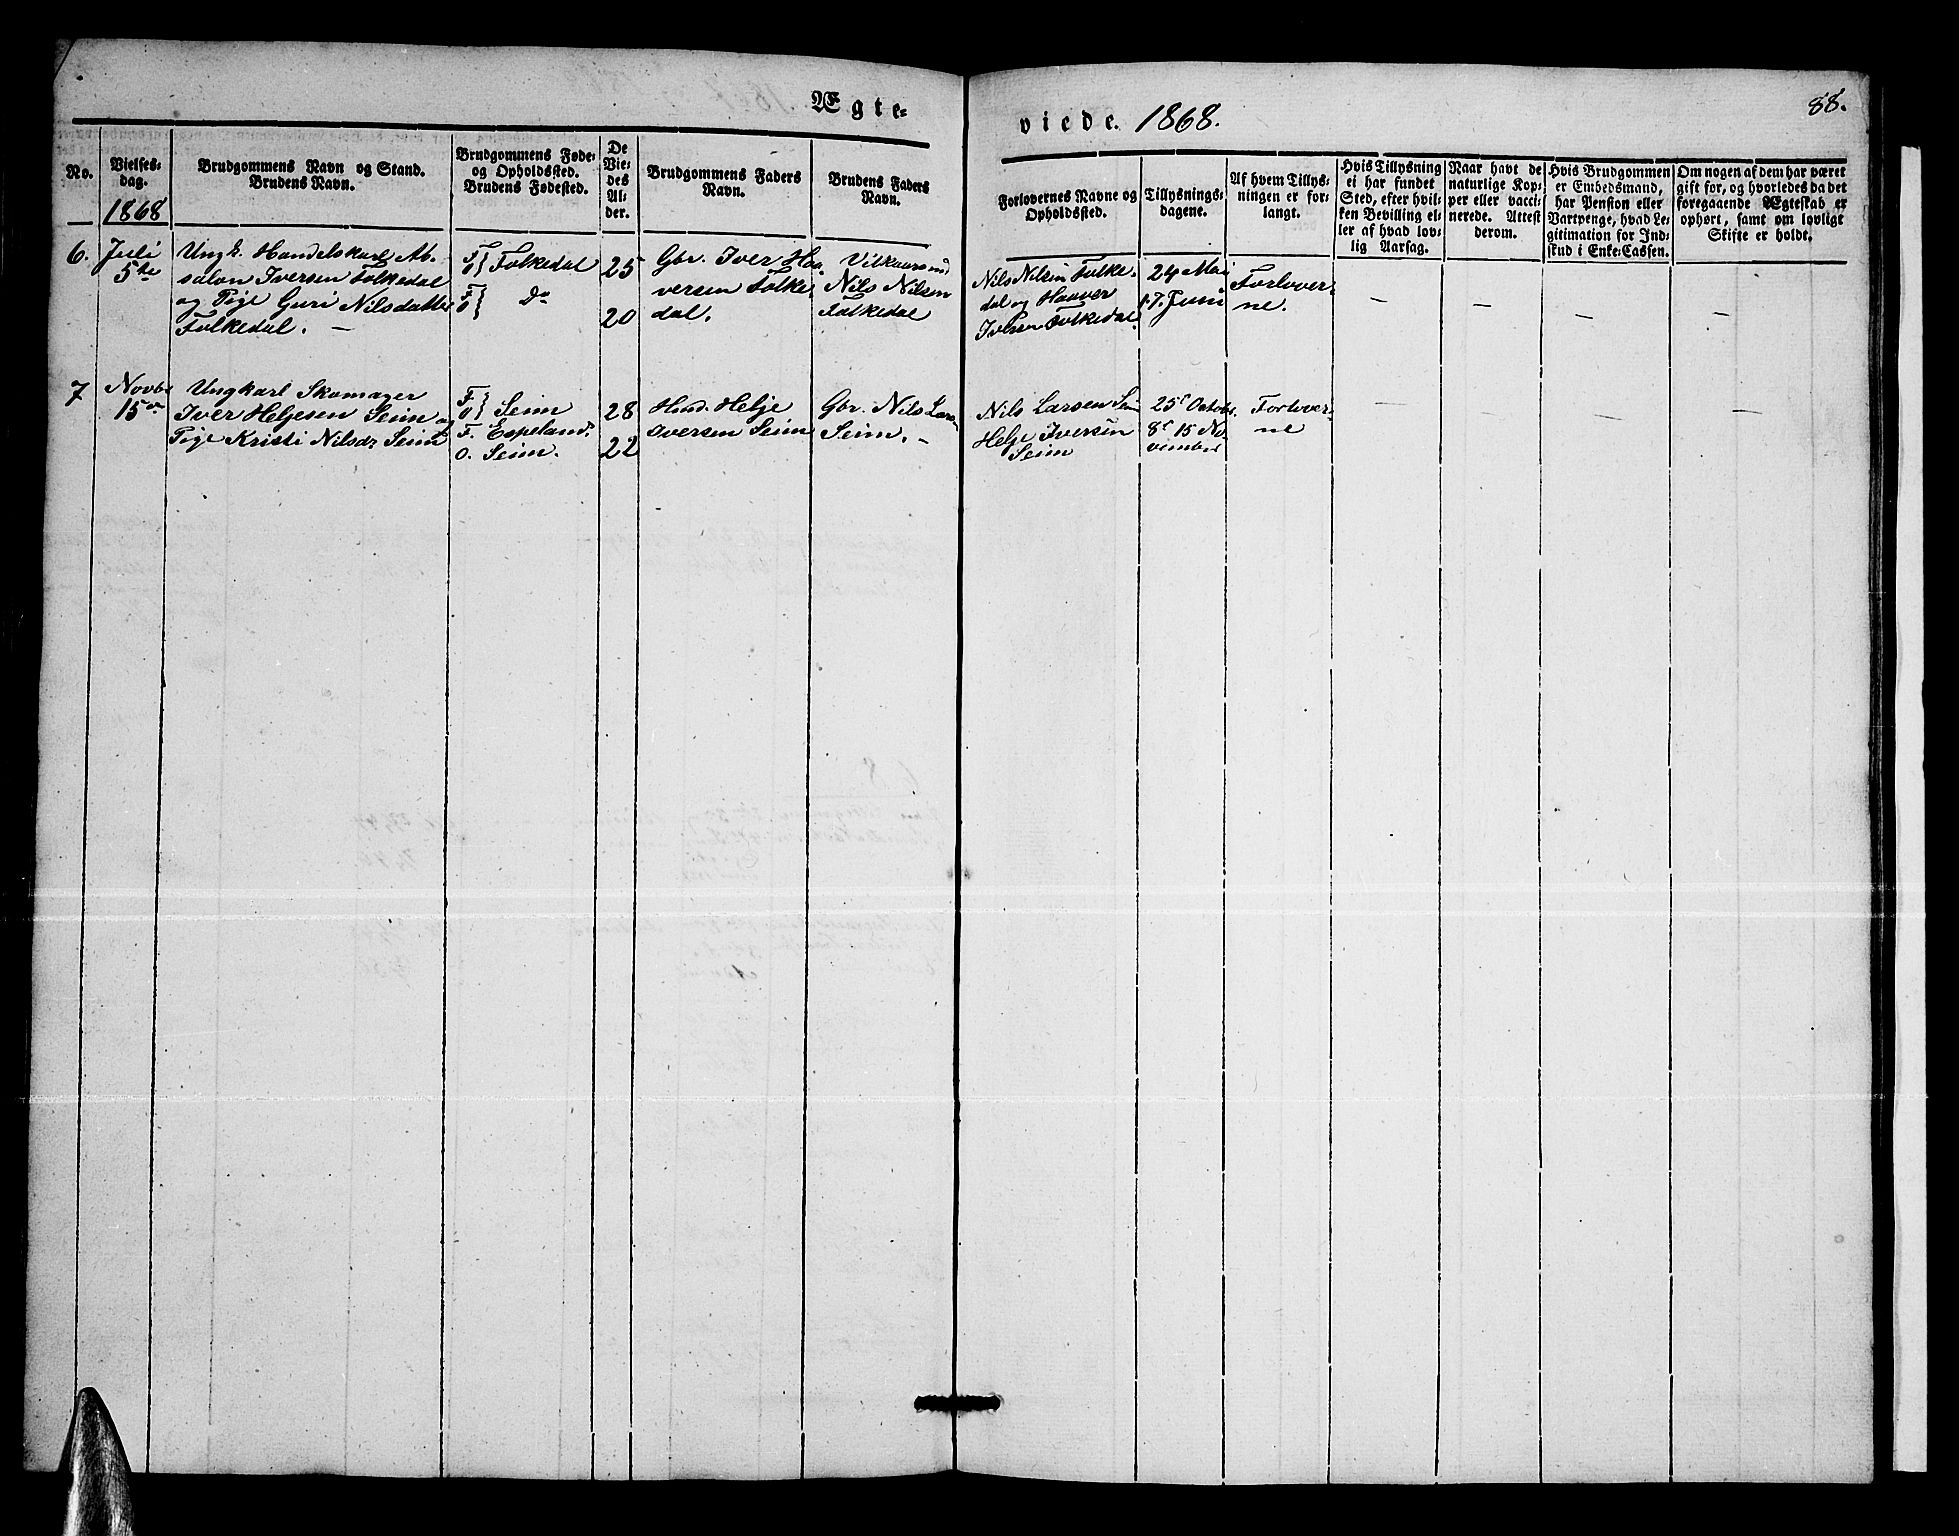 Ægte-
viede. 1868.
88.
No.
Vielses-
dag.
1868
Brudgommens Navn og Stand.
Brudens Navn.
Brudgommens Føde-
og Opholdssted.
Brudens Fødested.
De
Vie-
des
Al-
der.
Brudgommens Faders
Navn.
Brudens Faders
Navn.
Forlovernes Navne og
Opholdssted.
Tillysnings-
dagene.
Af hvem Tillys-
ningen er for-
langt.
Hvis Tillysning
ei har fundet
Sted, efter hvil-
ken Bevilling el-
ler af hvad lov-
lig Aarsag.
Naar havt de
naturlige Kop-
per eller vacci-
nerede. Attest
derom.
Hvis Brudgommen
er Embedsmand,
har Pension eller
Vartpenge, hvad Le-
gitimation for Ind-
skud i Enke-Cassen.
Om nogen af dem har været
gift for, og hvorledes da det
foregaaende Ægteskab er
ophørt, samt om lovligt
Skifte er holdt.
6.
Juli
5te
Ungk. Handelskarl Ab-
salon Iversen Folkedal
og Pige Guri Nilsdatter
Folkedal. —
F
O } Folkedal
F
O } Do
25
20
Gbr. Iver Haa-
versen Folke-
dal.
Vilkaarsmd
Nils Nilsen
Folkedal
Nils Nilsen Folke-
dal og Haaver
Iversen Folkedal.
24 Mai
1. 7. Juni
Forlover-
ne.
—
—
—
—
7
Novbr
15de
Ungkarl Skomager
Iver Heljesen Seim og
Pige Kristi Nilsdr Seim
F
O } Seim
F. Espeland.
O. Seim.
28
22
Husd. Helje
Iversen Seim
Gbr. Nils Lars-
Seim. —
Nils Larsen Seim
Helje Iversen
Seim
25de Octobr.
8de 15 No-
vember
Forlover-
ne
—
—
—
—